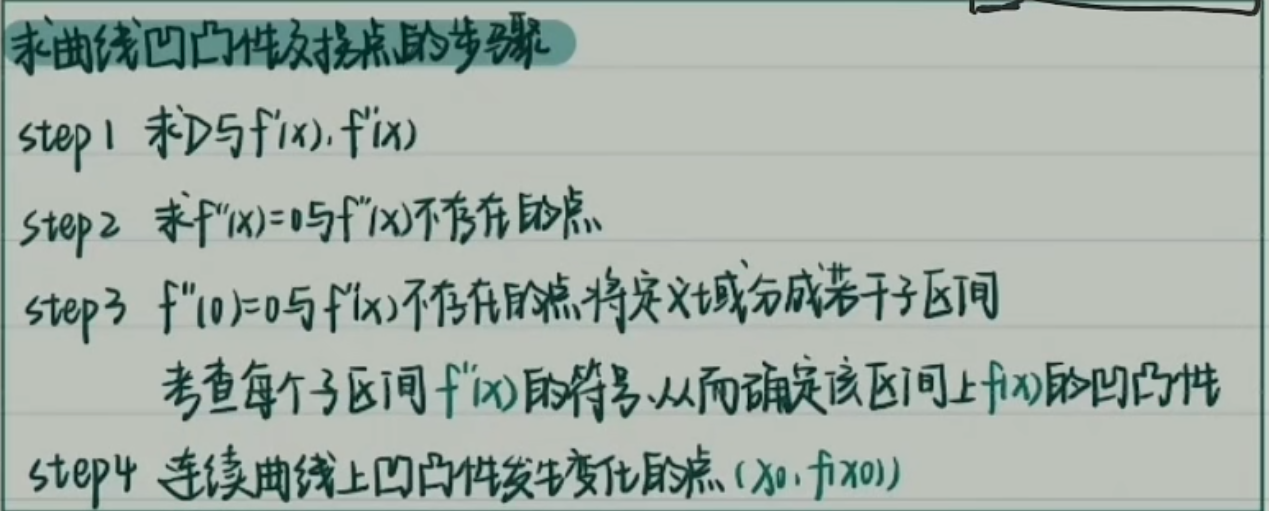 求曲线凹凸性及拐点的步骤
step1 求D与f'(x),f''(x)
step2 求f''(x)=0与f''(x)不存在的点
step3 f''(0)=0与f''(x)不存在的点将定义域分成若干子区间
考查每个子区间f''(x)的符号、从而确定该区间上f(x)的凹凸性
step4 连续曲线上凹凸性发生变化的点(x0,f(x0))